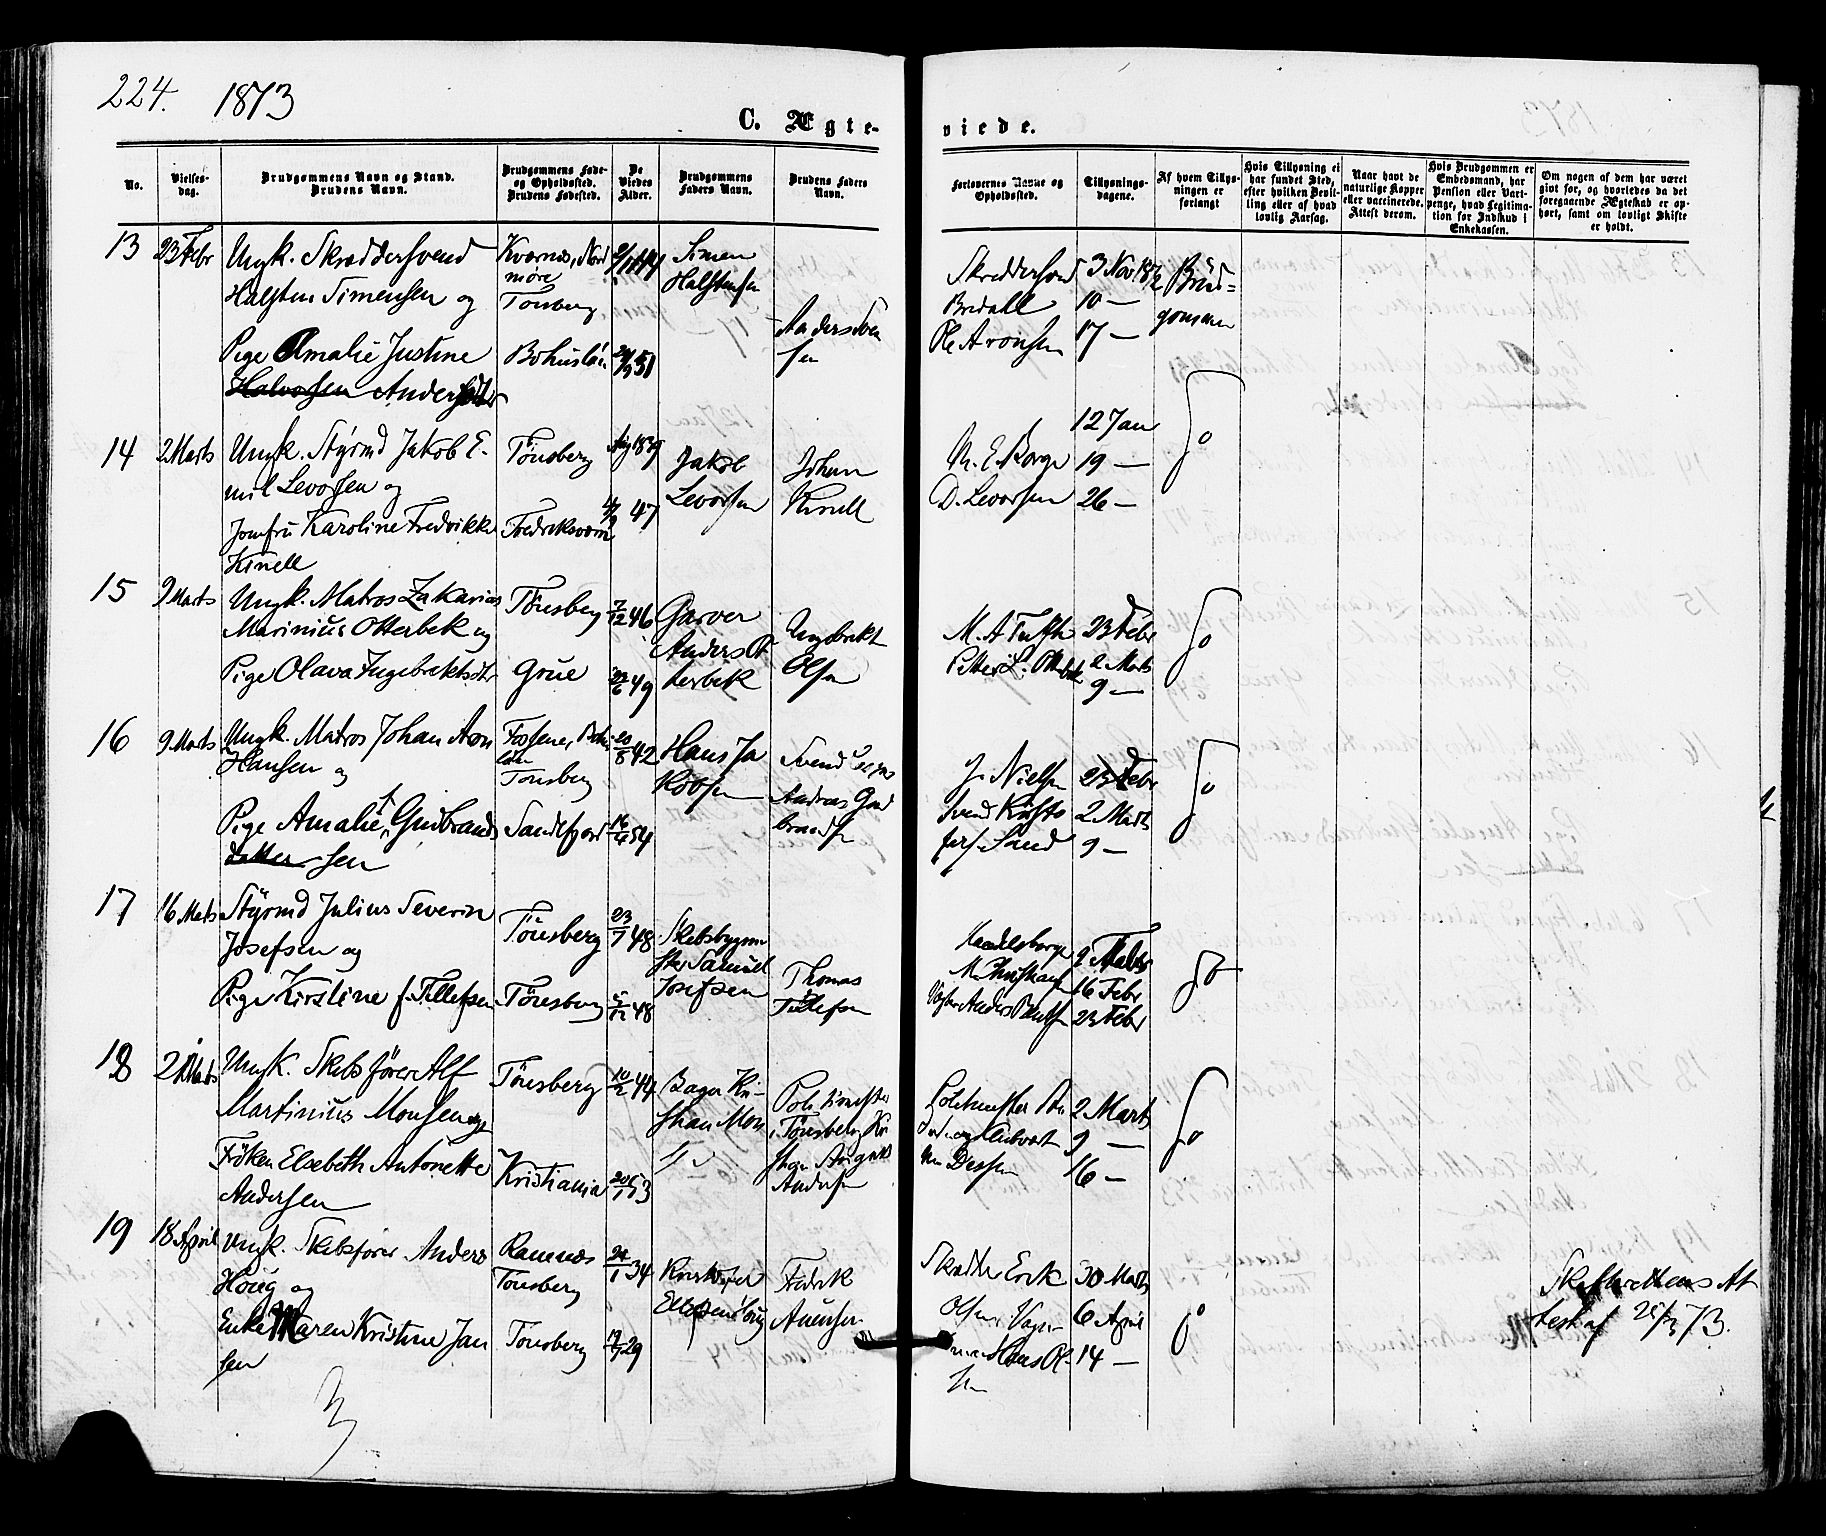 224. 1873
C. Ægte-
viede.
No.
Vielses-
dag.
Brudgommens Navn og Stand.
Brudens Navn.
Brudgommens Føde-
og Opholdssted.
Brudens Fødested.
De
Viedes
Alder.
Brudgommens
Faders Navn.
Brudens Faders
Navn.
Forlovernes Navne og
Opholdssted.
Tillysnings-
dagene.
Af hvem Tillys-
ningen er
forlangt
Hvis Tillysning ei
har fundet Sted,
efter hvilken Bevil-
ling eller af hvad
lovlig Aarsag.
Naar havt de
naturlige Kopper
eller vaccinerede.
Attest derom.
Hvis Brudgommen er
Embedsmand, har
Pension eller Vart-
penge, hvad Legitima-
tion for Indskud i
Enkekassen.
Om nogen af dem har været
givt før, og hvorledes da det
foregaaende Ægteskab er op-
hørt, samt om lovligt Skifte
er holdt.
13
23 Febr
Ungk. Skræddersvend
Halsten Simensen og
Pige Amalie Justine
Halvorsen Andersdtr
Kværnes, Nord
møre
Tønsberg
Bohuslän
51
Simen
Halstensen
Anders Sven
sen
Skræddersvend
Bredahl
Ole Aronsen
3 Nov 1872
10 —
17 —
Brud=
gommen
14
2 Marts
Ungk. Styrmd Jakob E-
mil Levorsen og
Jomfru Karoline Fredrikke
Kinell
Tönsberg
Fredriksværn
Aug 1839
47
Jakob
Levorsen
Johan
Kinell
M. E. Borge
D. Levorsen
12 Jan
19 —
26 —
do
15
9 Marts
Ungk. Matros Zakarias
Marinius Otterbek og
Pige Olava Ingebrektsdtr
Tönsberg
Grue
7/12 46
23/6 49
Garver
Anders Ot
terbek
Ingebrekt
Olsen
M. A Tufte
Petter L. Otterbek
23 Febr
2 Marts
9 —
do
16
9 Marts
Ungk. Matros Johan Aron
Hansen og
Pige Amalie Gudbrands
datter sen
Fossene, Bohus
län
Tønsberg
Sandefjord
20/8 42
54
Hans Ja
kobsen
Svend
Andreas Gud
brandsen
J. Nielsen
Svend Kristo
fersen Sand
23 Febr
2 Marts
9 —
do
17
16 Marts
Styrmd Julius Severin
Josefsen og
Pige Kirstine f. Tillefsen
Tönsberg
Tönsberg
23/7 48
5/12 48
Skibsbygm
ster Samuel
Josefsen
Thomas
Tillefsen
Handelsborger
M. Christiansen
Anders Bentsen
2 Febr
16 Febr
23 Febr
do
18
2 Marts
Ungk. Skibsfører Alf
Martinius Monsen og
Fröken Elsebeth Antonette
Andersen
Tönsberg
Kristiania
10/2 44
20/1 53
Bager Kri-
stian Mon
sen
Politimester
i Tönsberg Kri
stian August
Andersen
Politmester An
dersen
2 Marts
9 —
16 —
do
19
18 April
Ungk. Skibsfører Anders
Houg og
Enke Maren Kristine Jan
sen
Ramnes
Tønsberg
Tønsberg
24/1 34
29
Kristofer
Ellefsen Houg
Fredrik
Anensen
Skrædder Erik
Olsen
Hans Ol-
sen
30 Marts
6 April
14 —
do
Skifterettens At
test af 28/3 73.